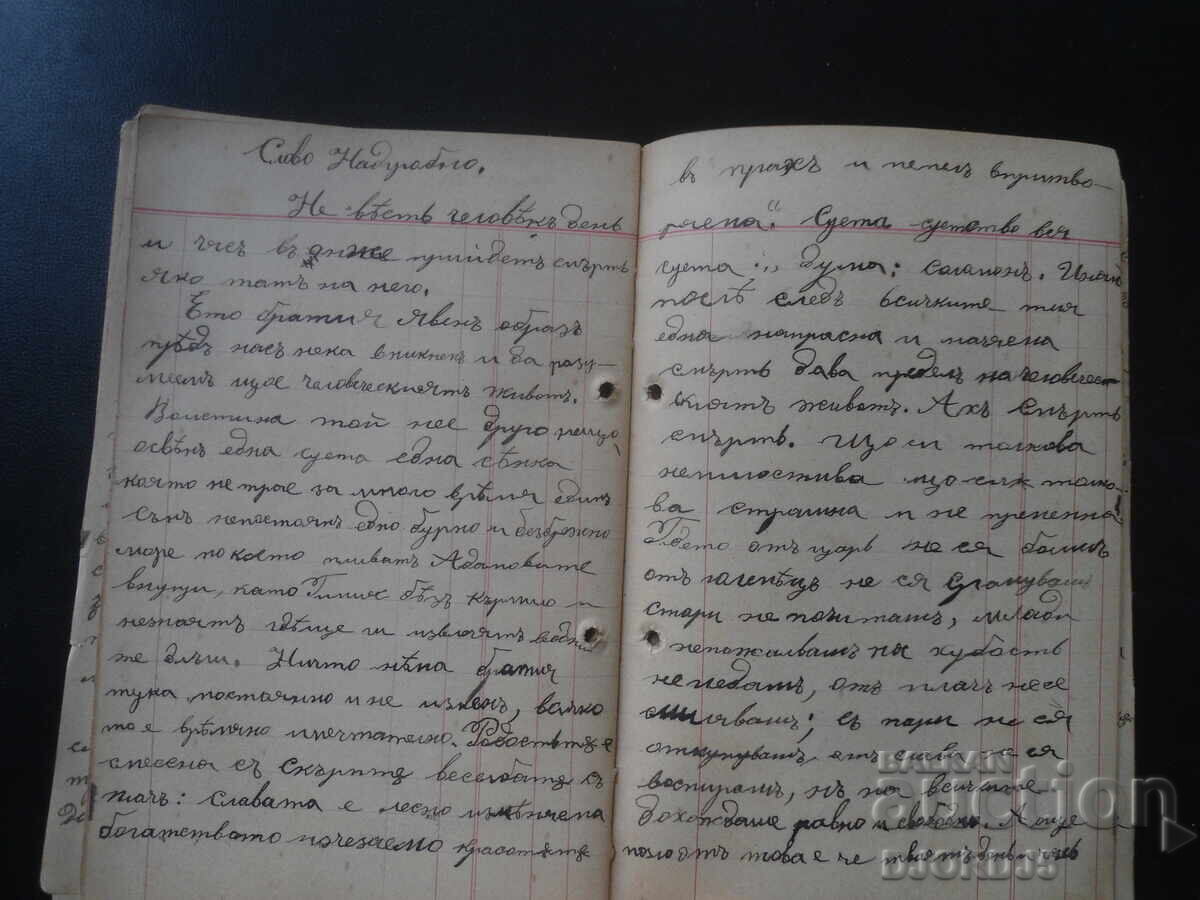 Слово Надгробно.
Не вѣсть человѣкъ день
и часъ въ онже прійдетъ смърть
яко тать на него.
Ето братия явенъ образъ
прѣдъ насъ нека вникнемъ и да разу-
меемъ що е человеческиятъ животъ.
Воистина той не е друго нещо
освѣнъ една суета една сѣнка
която не трае за много врѣмя единъ
сънъ непостоянъ едно бурно и безбрежно
море по което плаватъ Адамовите
внуци, като Гимия бѣзъ кърмило и
незнаятъ гдѣще ги извлѣчатъ
те вълни. Ничто нѣма братия
тука постоянно и не измен, всяко
то е врѣмянно и мечтателно. Радостьта е
смесена съ скърпта веселбата съ
плачъ: славата е лесно измѣнчена
богатството изчезаемо красотата
въ прахъ и пепелъ впритво-
ряема". Суета суетство вся
суета: „ дума: Соломонъ. И най
послѣ следъ всичките тия
една напрасна и мачена
смърть дава пределъ на человечес-
киятъ животъ. Ахъ Смърть
смърть. Що си толкова
немилостива що сяк толко-
ва страшна и не пременна
Гдето отъ царь не ся боишъ
отъ юнѣцъ не ся срамувашъ
стари не почиташъ, млади
непожалвашъ на хубость
не гледашъ, отъ плачъ не се
смилявашъ; съ пари не ся
откупувашъ отъ слава не ся
воспирашъ, нъ на всичките
дохождаше равно и свободно. А още е
позло отъ това е че твоятъ день и часъ
BALKAN
auction
DJORDJ5